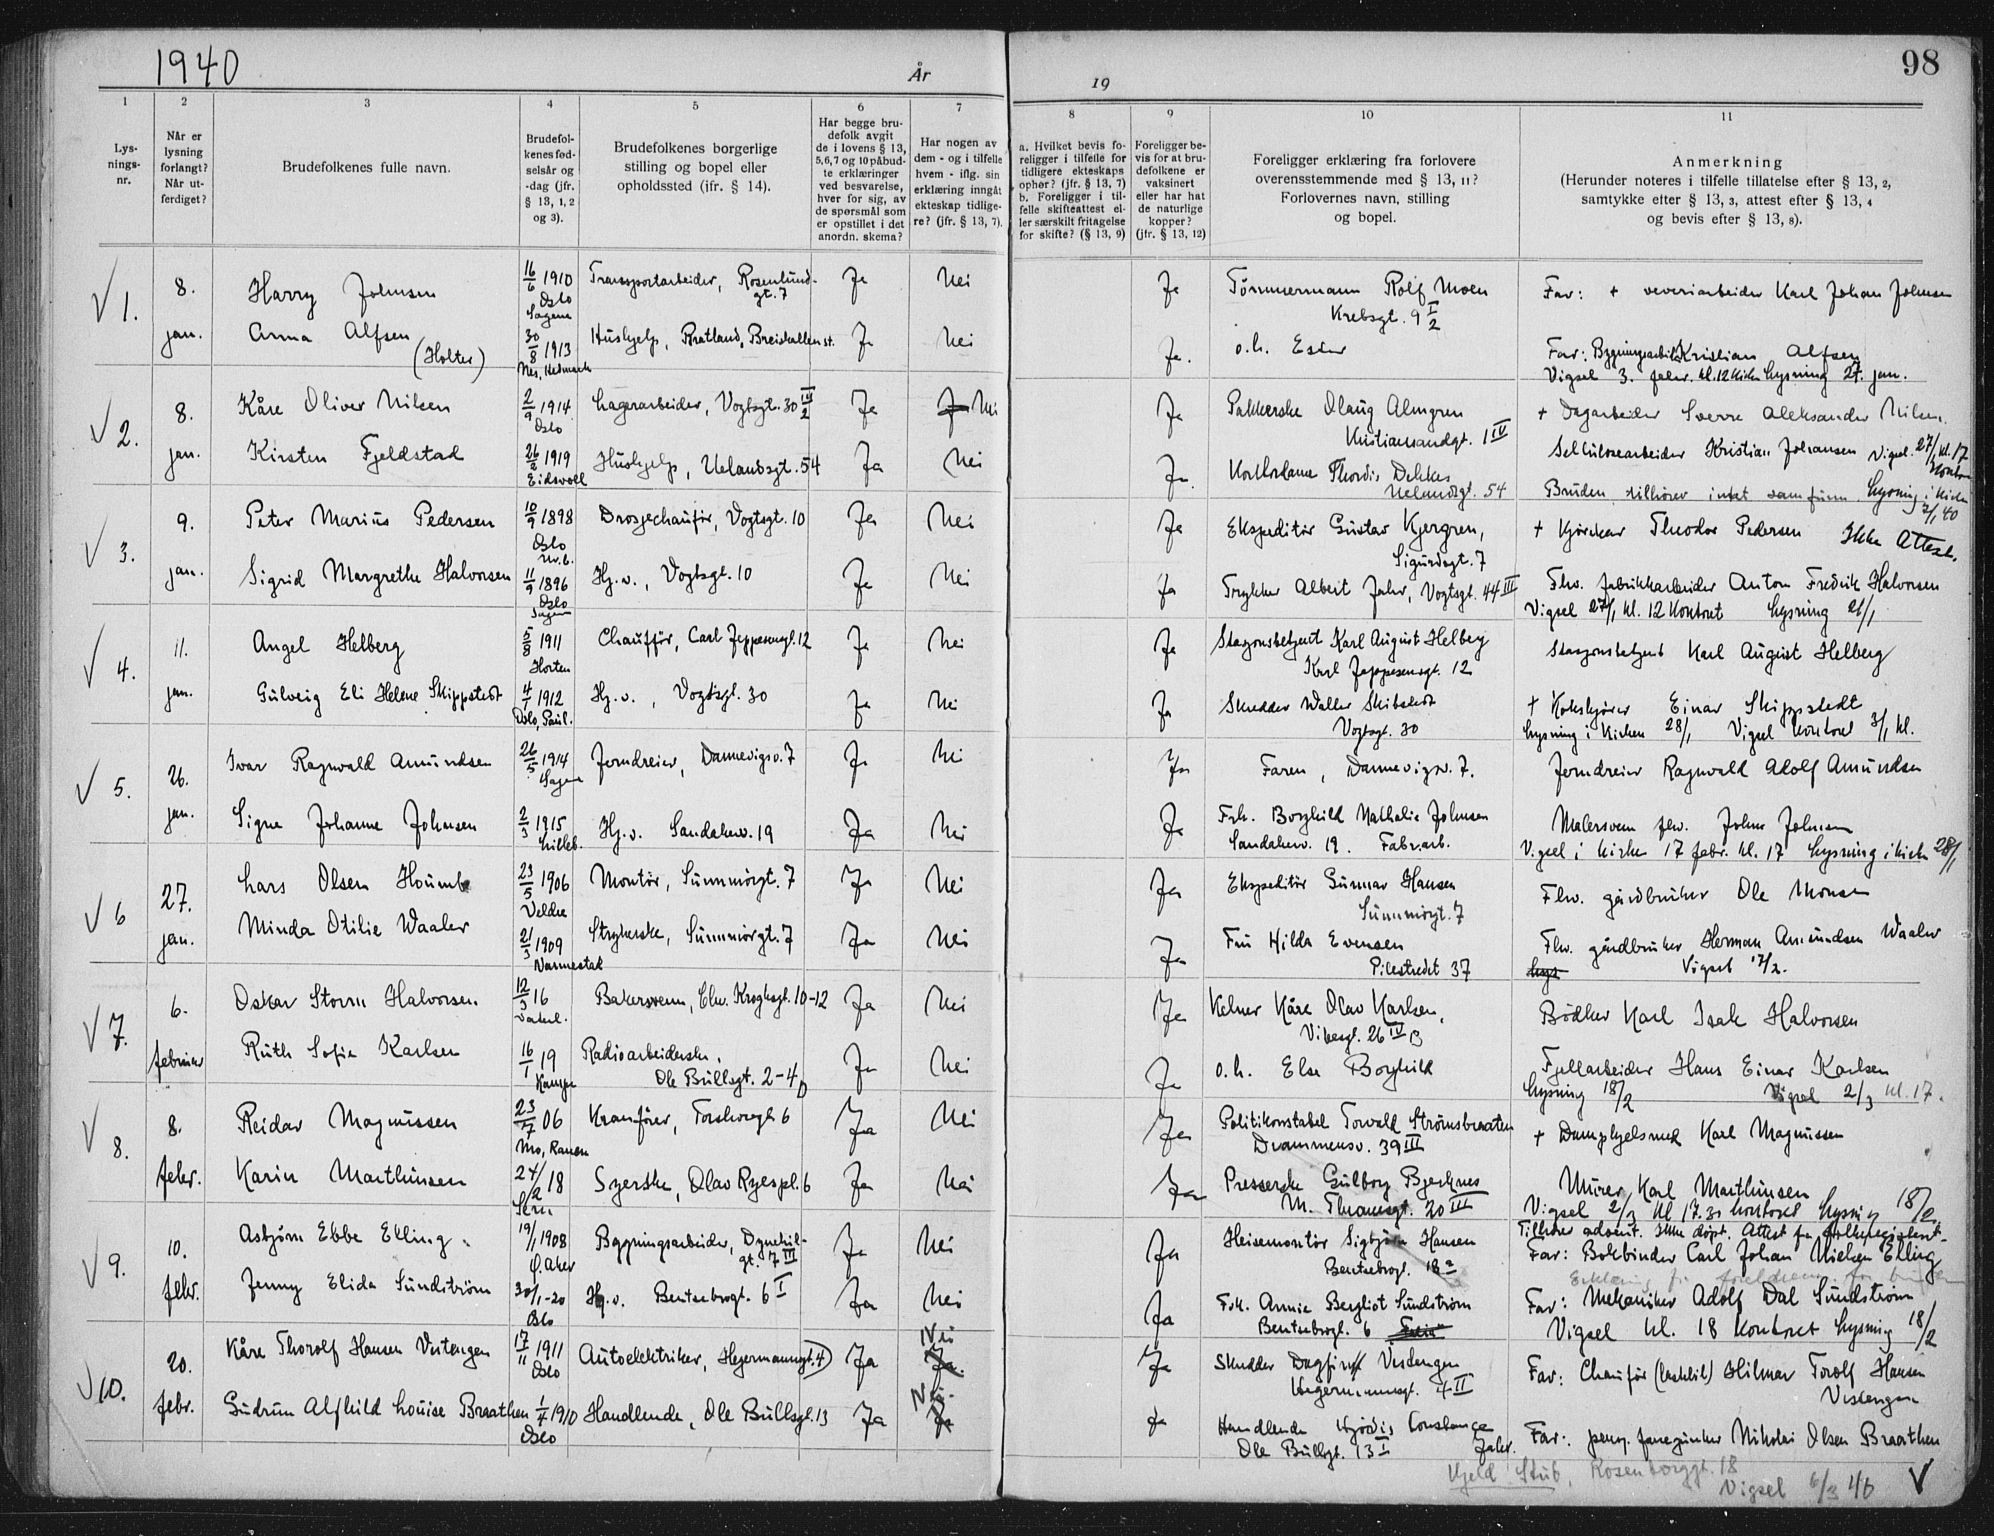 1940
År
19
98
1
2
3
4
5
6
7
8
9
10
11
Lys-
nings-
nr.
Når er
lysning
forlangt?
Når ut-
ferdiget?
Brudefolkenes fulle navn.
Brudefol-
kenes fød-
selsår og
-dag (jfr.
§ 13, 1, 2
og 3).
Brudefolkenes borgerlige
stilling og bopel eller
opholdssted (ifr. § 14).
Har begge bru-
defolk avgit
de i lovens § 13,
5,6,7 og 10 påbud-
te erklæringer
ved besvarelse,
hver for sig, av
de spørsmål som
er opstillet i det
anordn. skema?
Har nogen av
dem - og i tilfelle
hvem - iflg. sin
erklæring inngått
ekteskap tidlige-
re? (jfr. § 13, 7).
a. Hvilket bevis fo-
religger i tilfelle for
tidligere ekteskaps
ophør? (jfr. § 13, 7)
b. Foreligger i til-
felle skifteattest el-
ler særskilt fritagelse
for skifte? (§ 13, 9)
Foreligger be-
vis for at bru-
defolkene er
vaksinert
eller har hat
de naturlige
kopper?
(jfr. § 13, 12)
Foreligger erklæring fra forlovere
overensstemmende med § 13, 11?
Forlovernes navn, stilling
og bopel.
Anmerkning
(Herunder noteres i tilfelle tillatelse efter § 13, 2,
samtykke efter § 13, 3, attest efter § 13, 4
og bevis efter § 13, 8).
1.
8.
jan.
Harry Johnsen
16/6 1910
Oslo
Sagene
Transportarbeider, Rosenlund-
gt. 7
Ja
Nei
Ja
Tømmermann Rolf Moen
Krebsgt. 9 I/2
Far: + veveriarbeider Karl Johan Johnsen
Anna Alfsen
(Holter)
30/8 1913
Nes, Hedmark
Hushjelp, Bratland, Breiskallen st.
Ja
Nei
Ja.
o.h. Ester
Far: Bygningsarbeid. Kristian Alfsen
Vigsel 3. febr. kl. 12 Kirken Lysning 27. jan.
2.
8.
jan.
Kåre Oliver Nilsen
2/9 1914
Oslo
Lagerarbeider, Vogtsgt. 30 III/2
Ja
Nei
Ja
Pakkerske Olaug Almgren
Kristiansandgt. 1 IV
+ Dagarbeider Sverre Aleksander Nilsen.
Kirsten Fjeldstad
26/2 1919
Eidsvoll
Hushjelp, Uelandsgt. 54
Ja
Nei
Ja
Thordis Dekkes
Uelandsgt. 54
Sellulosearbeider Kristian Johansen Vigsel 27/1 kl. 17
Kontor
Bruden tilhører intet samfunn. Lysning i kirken
21/1 40
3.
9.
jan.
Peter Marius Pedersen
10/9 1898
Oslo
Ur. b.
Drosjechaufør, Vogtsgt. 10
Ja
Nei
Ja
Ekspeditør Gustav Kjergren,
Sigurdsgt. 7
+ Kjørekar Theodor Pedersen Ikke Attest.
Sigrid Margrethe Halvorsen
11/9 1896
Oslo
Sagene
Hj. v., Vogtsgt. 10
Ja
Nei
Ja
Trykker Albert Jahr, Vogtsgt. 44 III
Fhv. fabrikkarbeider Anton Fredrik Halvorsen
Vigsel 27/1 kl. 12 Kontoret Lysning 21/1
4.
11.
jan.
Angel Helberg
5/8 1911
Horten
Chauffør, Carl Jeppesensgt. 12
Ja
Nei
Ja
Stasjonsbetjent Karl August Helberg
Karl Jeppesensgt. 12
Stasjonsbetjent Karl August Helberg
Gulveig Eli Helene Skippstedt
4/1 1912
Oslo, Paul.
Hj. v., Vogtsgt. 30
Ja
Nei
Ja
Skredder Walter Skibstedt
Vogtsgt. 30
+ Kokskjører Einar Skippstedt
Lysning i Kirken 28/1 Vigsel Kontoret 3/1 kl.
5.
26.
jan.
Ivar Ragnvald Amundsen
26/5 1914
Sagene
Jerndreier, Dannevigsv. 7
Ja
Nei
Ja
Faren, Dannevigsv. 7.
Jerndreier Ragnvald Adolf Amundsen
Signe Johanne Johnsen
2/3 1915
Lilleb.
Hj. v. Sandakerv. 19
Ja
Nei
Ja
Frk. Borghild Nathalie Johnsen
Sandakerv. 19. Fabr.arb.
Malersvenn fhv. John Johnsen
Vigsel i kirken 17 febr. kl. 17 Lysning i kirken 28/1
6
27.
jan.
Lars Olsen Houmb
23/5 1906
Veldre
Montør, Sunnmørgt. 7
Ja
Nei
Ja
Ekspeditør Gunnar Hansen
Sunnmørgt. 7
Fhv. gårdbruker Ole Monsen
Minda Otilie Waaler
21/3 1909
Nannestad
Strykerske, Sunnmørgt. 7
Ja
Nei
Ja
Fru Hilda Evensen
Pilestredet 37
Fhv. gårdbruker Herman Amundsen Waaler
Lys Vigsel 17/2.
7.
6.
februar
Oskar Storm Halvorsen
12/3 16
Vaterl.
Bakersvenn, Chr. Kroghsgt. 10-12
Ja
Nei
Ja
Kelner Kåre Olav Karlsen,
Vibesgt. 26 IV B
Bødker Karl Isak Halvorsen
Ruth Sofie Karlsen
16/1 19
Kampen
Radioarbeiderske,
Ole Bullsgt. 2-4 D
Ja
Nei
Ja
o.h. Else Borghild
Fjellarbeider Hans Einar Karlsen
Lysning 18/2 Vigsel 2/3 kl. 17.
8.
8.
febr.
Reidar Magnussen
23/7 06
Mo, Ranen
Kranfører, Torshovgt. 6
Ja
Nei
Ja
Politikonstabel Torvald Strømsbraaten
Drammensv. 39 III
+ Dampkjelsmed Karl Magnussen
Karin Marthinsen
24/2 18
Syerske, Olav Ryespl. 6
Ja
Nei
Ja
Presserske Gulborg Bjerknes
M. Thranesgt. 20 III
Murer Karl Marthinsen
Vigsel 2/3 kl 17.30 kontoret Lysning 18/2
9.
10.
febr.
Asbjørn Ebbe Elling.
19/1 1908
Ø. Aker
Bygningsarbeider, Dynekil-
gt. 7 III
Ja
Nei
Ja
Heisemontør Sigbjørn Hansen
Bentsebrogt. 18 a
Tilhører advent. Ikke døpt. Attest fra folkeregisteret.
Far: Bokbinder Carl Johan Nielsen Elling
Jenny Elida Sundstrøm
30/1-20
Oslo
Hj. v. Bentsebrogt. 6 I
Ja
Nei
Ja
Frk. Annie Bergliot Sundstrøm
Bentsebrogt. 6
Far: Mekaniker Adolf Dal Sundstrøm
Vigsel kl. 18 kontoret Lysning 18/2
10.
20.
febr.
Kåre Thorolf Hansen Vestengen
17/11 1911
Oslo
Autoelektriker, Hegermannsgt. 4
Ja
Nei
Ja
Ja
Skredder Dagfinn Vestengen
Hegermannsgt. 4 II
Far: Chaufør (lastebil) Hilmar Torolf Hansen
Vestengen
Gudrun Alfhild Louise Braathen
1/4 1910
Oslo
Handlende, Ole Bullsgt. 13
Ja
Nei
Ja
Ja
Handlende Hjørdis Constance
Ole Bullsgt. 13 I Jahr.
Far: pensj. fanejunker Nikolai Olsen Braathen
Kjeld Stub, Rosenborggt. 18
Vigsel 6/3 46